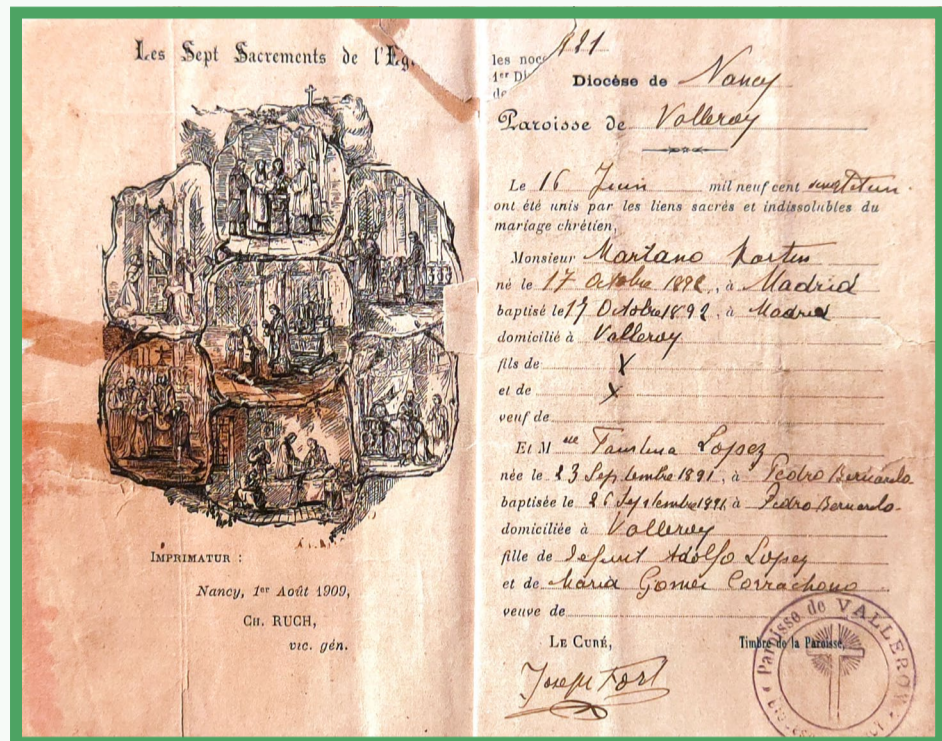 Les Sept Sacrements de l'Eg
IMPRIMATUR :
Nancy, 1er Août 1909,
CH. RUCH,
vic. gén.
les noc
1er Di
de
Diocèse de Nancy
Paroisse de Valleroy
Le 16 Juin mil neuf cent
ont été unis par les liens sacrés et indissolubles du
mariage chrétien,
Monsieur Mariano Martin
né le 17 Octobre 1892, à Madrid
baptisé le 17 Octobre 1892, à Madrid
domicilié à Valleroy
fils de X
et de X
veuf de
Et Melle Faustina Lopez
née le 23 Septembre 1891, à Pedro Bernardo
baptisée le 26 Septembre 1891, à Pedro Bernardo
domiciliée à Valleroy
fille de defunt Adolfo Lopez
et de Maria Gomez
veuve de
LE CURÉ,
Timbre de la Paroisse,
Joseph Fort
Paroisse de VALLEROY